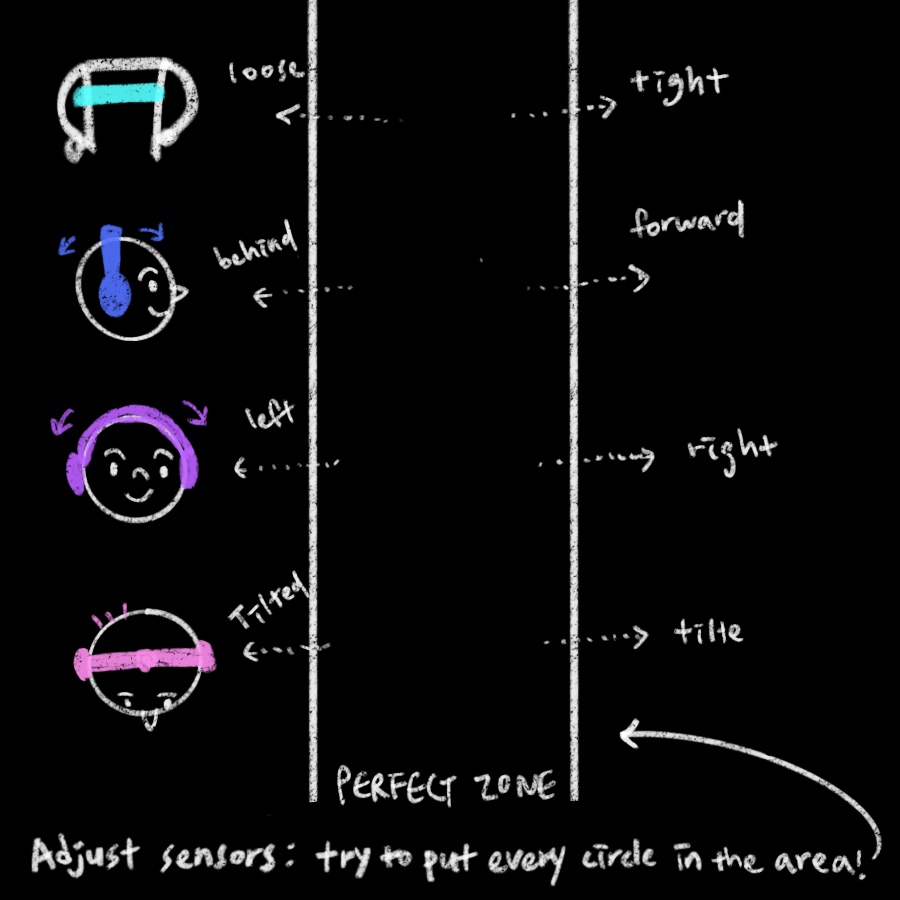 loose
tight
behind
forward
left
right
Tilted
tilte
PERFECT ZONE
Adjust sensors: try to put every circle in the area!